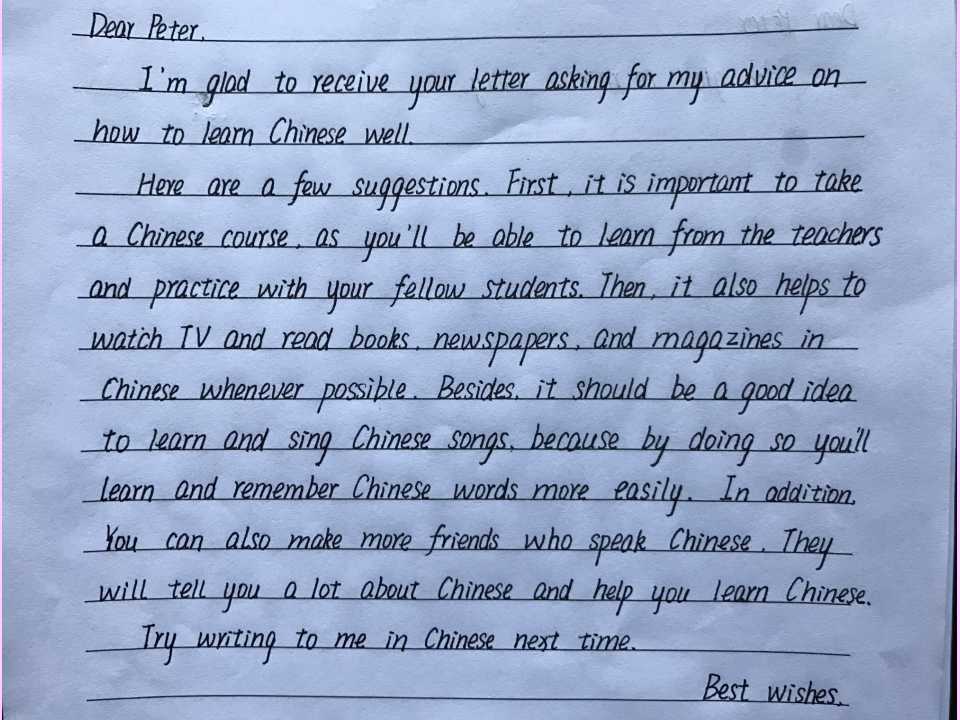 Dear Peter,
I'm glad to receive your letter asking for my advice on
how to learn Chinese well.
Here are a few suggestions. First, it is important to take
a Chinese course, as you'll be able to learn from the teachers
and practice with your fellow students. Then, it also helps to
watch TV and read books, newspapers, and magazines in
Chinese whenever possible. Besides, it should be a good idea
to learn and sing Chinese songs, because by doing so you'll
learn and remember Chinese words more easily. In addition,
You can also make more friends who speak Chinese. They
will tell you a lot about Chinese and help you learn Chinese.
Try writing to me in Chinese next time.
Best wishes,